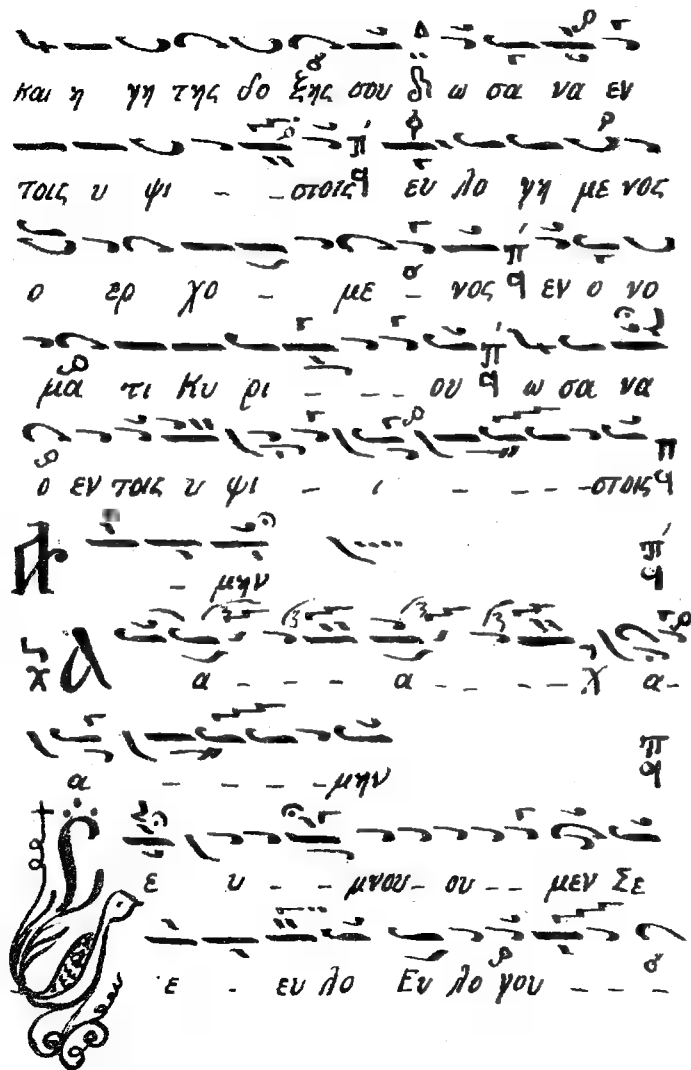 και η γη της δο ξης σου ω σα να εν
τοις υ ψι - - στοις ευ λο γη με νος
ο ερ χο - με - νος εν ο νο
μα τι Κυ ρι - - - - ου ω σα να
ο εν τοις υ ψι - ι - - - - στοις
- μην
α - - - - α - - - - - χ α -
α - - - - - μην
ε υ - - μνου - ου - - μεν Σε
ε - ευ λο Ευ λο γου - - - -